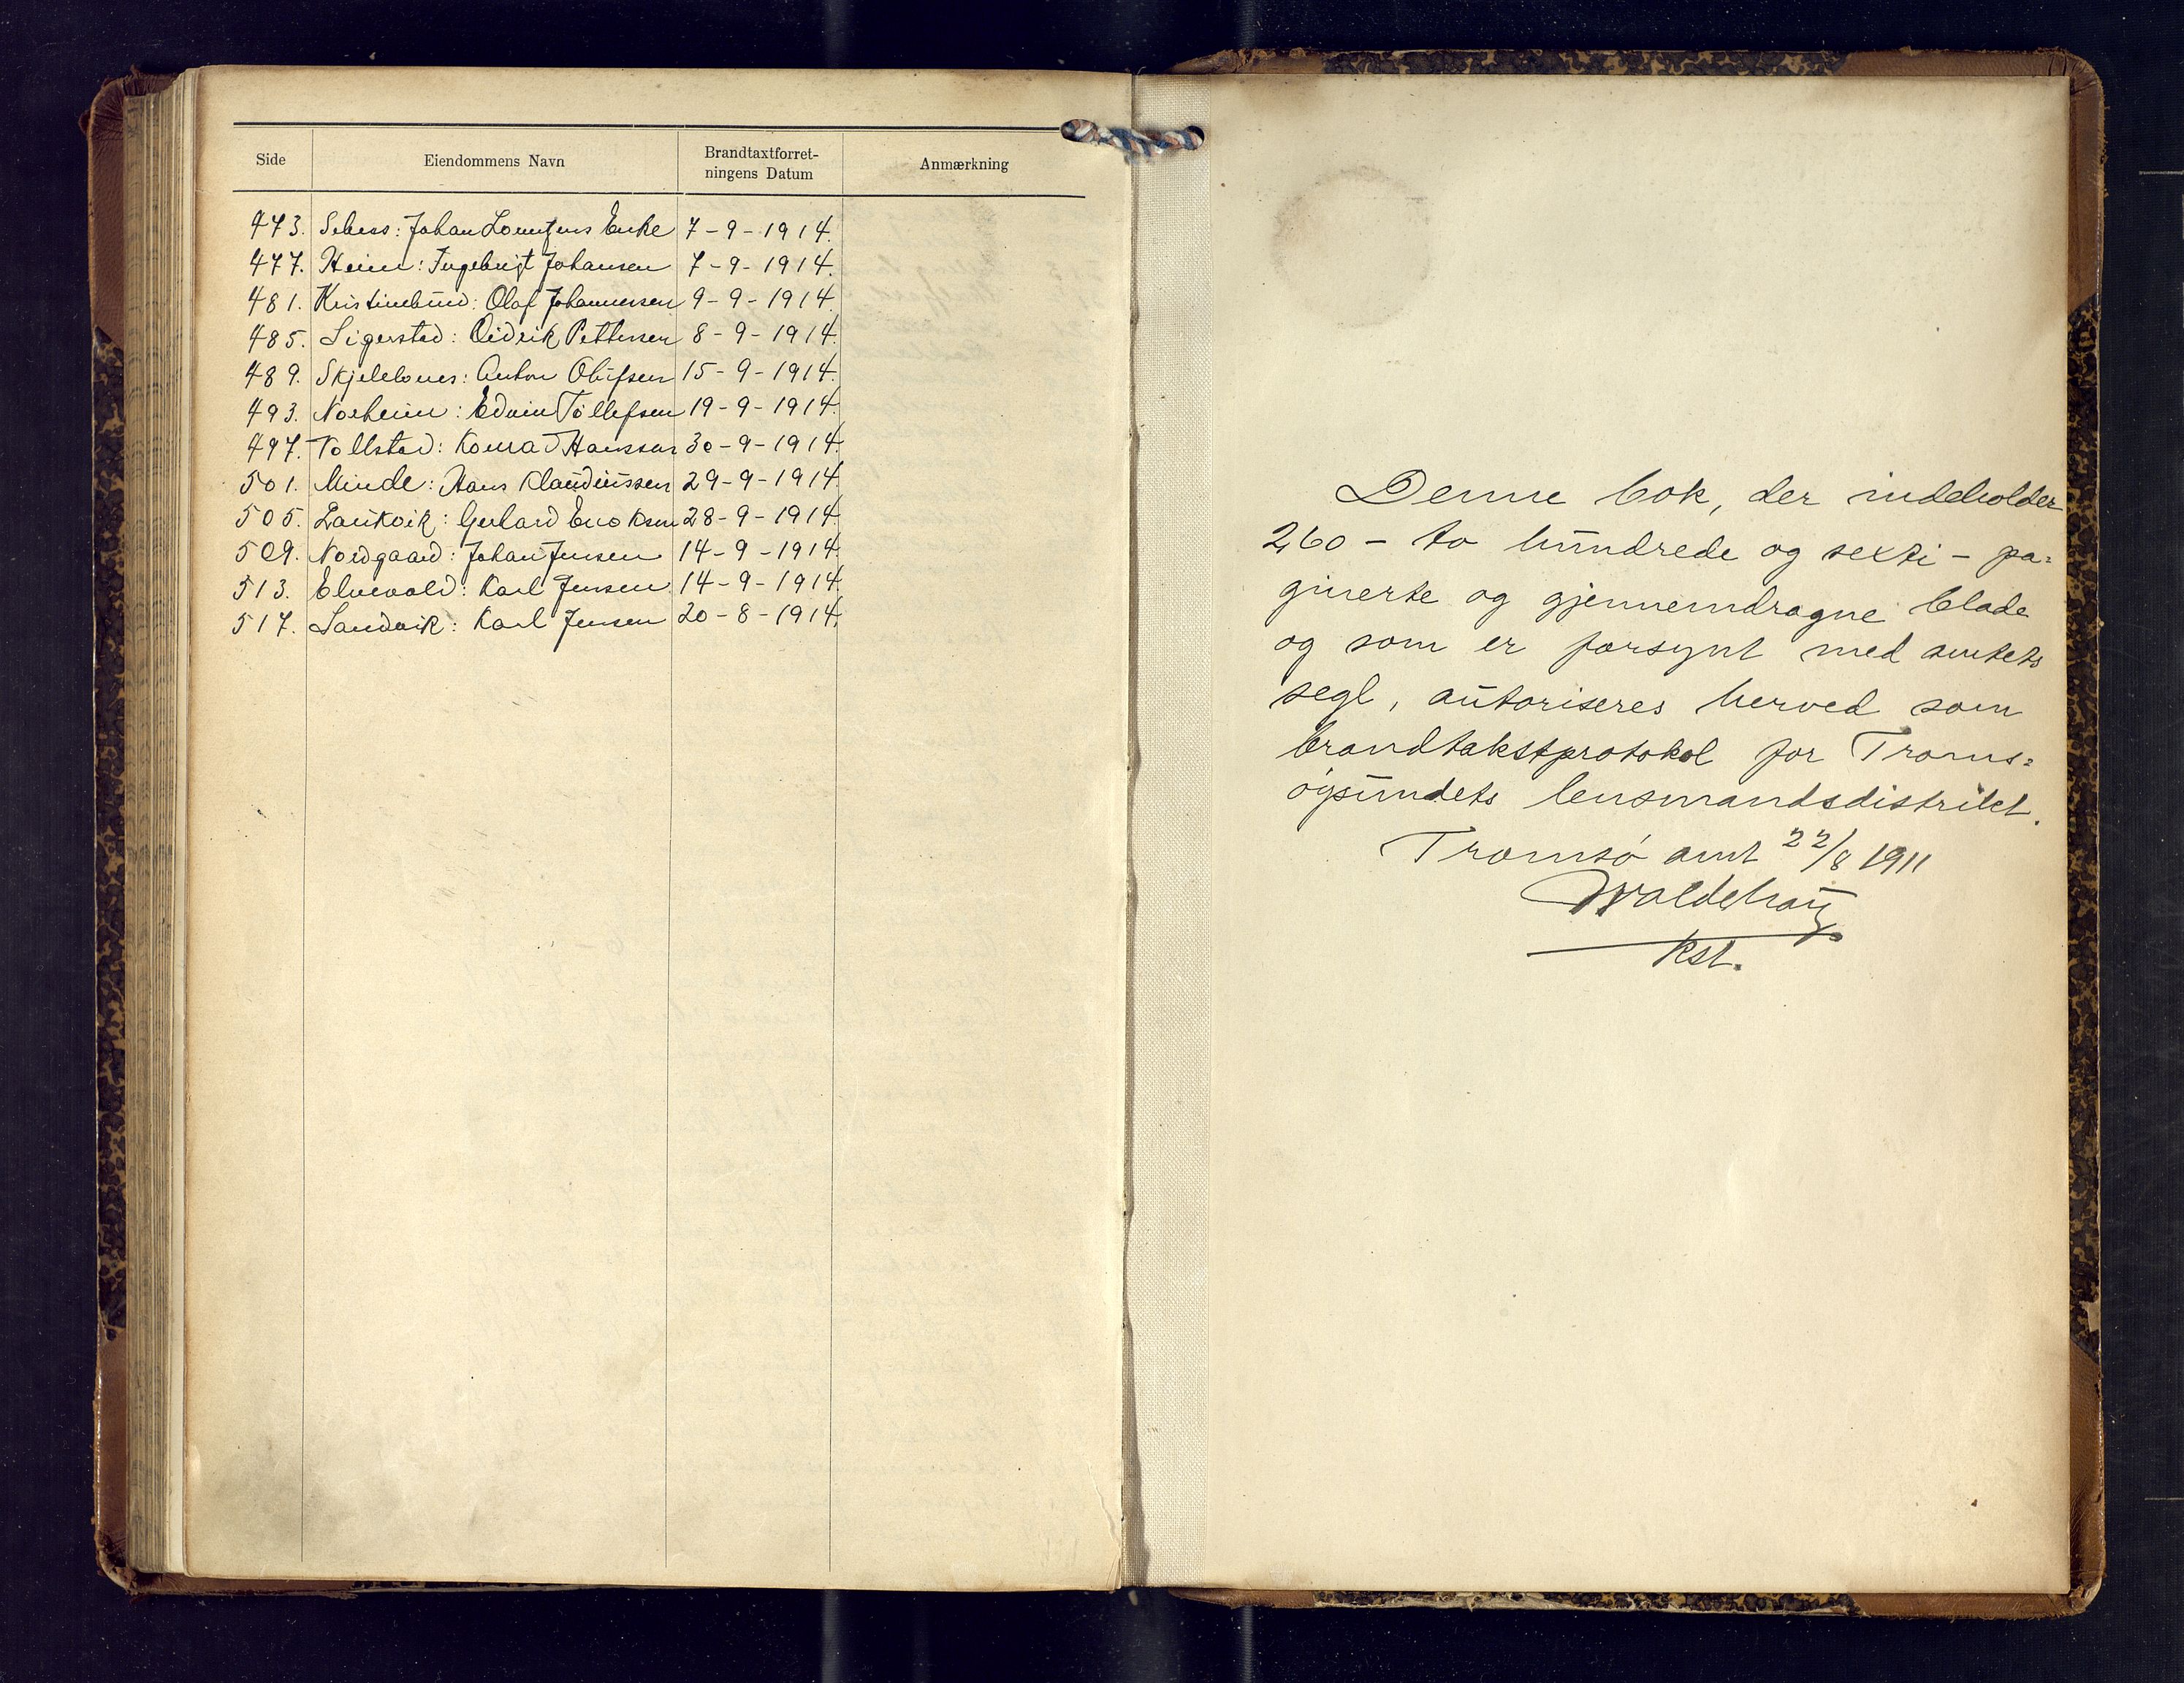 Side Eiendommens Navn Brandtaxtforret-
ningens Datum Anmærkning
473. Johan Enke 7-9-1914.
477. Heim: Ingebrigt Johansen 7-9-1914.
481. Kristinelund: Olaf Johannesen 9-9-1914.
485. Sigerstad: Didrik Pettersen 8-9-1914.
489. Skjelelvnes: Anton Olufsen 15-9-1914.
493. Norheim: Edvin Tollefsen 19-9-1914.
497. Vollstad: Konrad Hanssen 30-9-1914.
501. Minde: Hans Klaudiussen 29-9-1914
505. Laukvik: Gerhard Enoksen 28-9-1914.
509. Nordgaard: Johan Jensen 14-9-1914.
513. Elvevold: Karl Jensen 14-9-1914.
517. Sandvik: Karl Jensen 20-8-1914.
Denne bok, der indeholder
260 - to hundrede og sexti - pa=
ginerte og gjennemdragne blade
og som er forsynt med amtets
segl, autoriseres herved som
brandtakstprotokol for Troms=
øysundets lensmandsdistrikt.
Tromsø amt 22/8 1911
Kst.